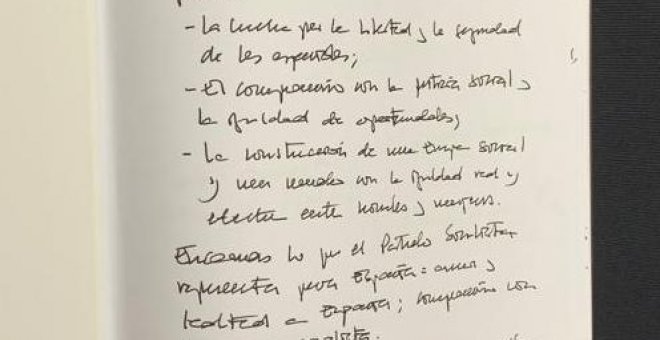 - La lucha por la libertad y la seguridad
de los españoles;
- El compromiso con la justicia social y
la igualdad de oportunidades;
- La construcción de una Europa social
y con la igualdad real y
efectiva entre hombres y mujeres.
Encarnas lo que el Partido Socialista
representa para España: amor y
lealtad a España; compromiso con